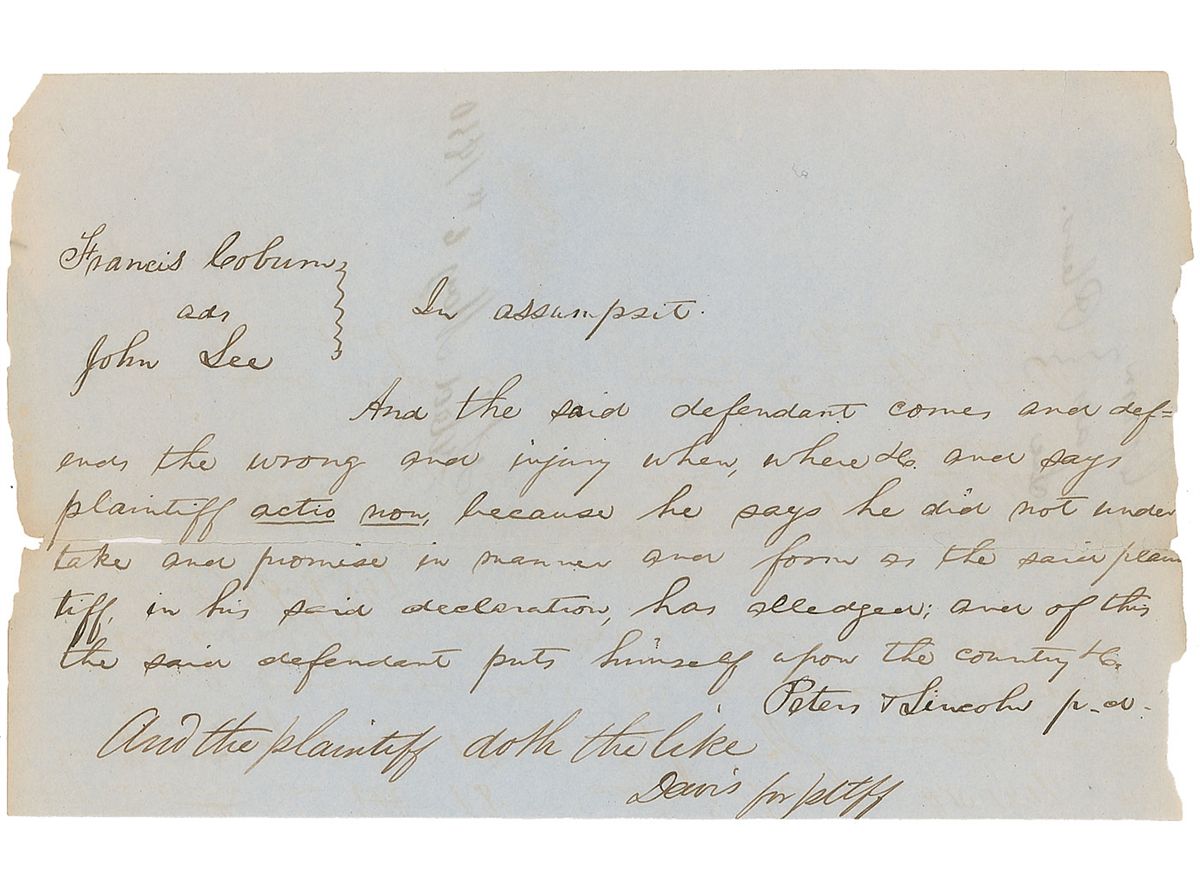 Francis Coburn
ads
John Lee
In assumpsit.
And the said defendant comes and def=
ends the wrong and injury when, where &c. and says
plaintiff actio non, because he says he did not under
take and promise in manner and form as the said plain
tiff, in his said declaration, has alledged; and of this
the said defendant puts himself upon the country &c.
Peters & Lincoln p.d.
And the plaintiff doth the like
Davis for pltff